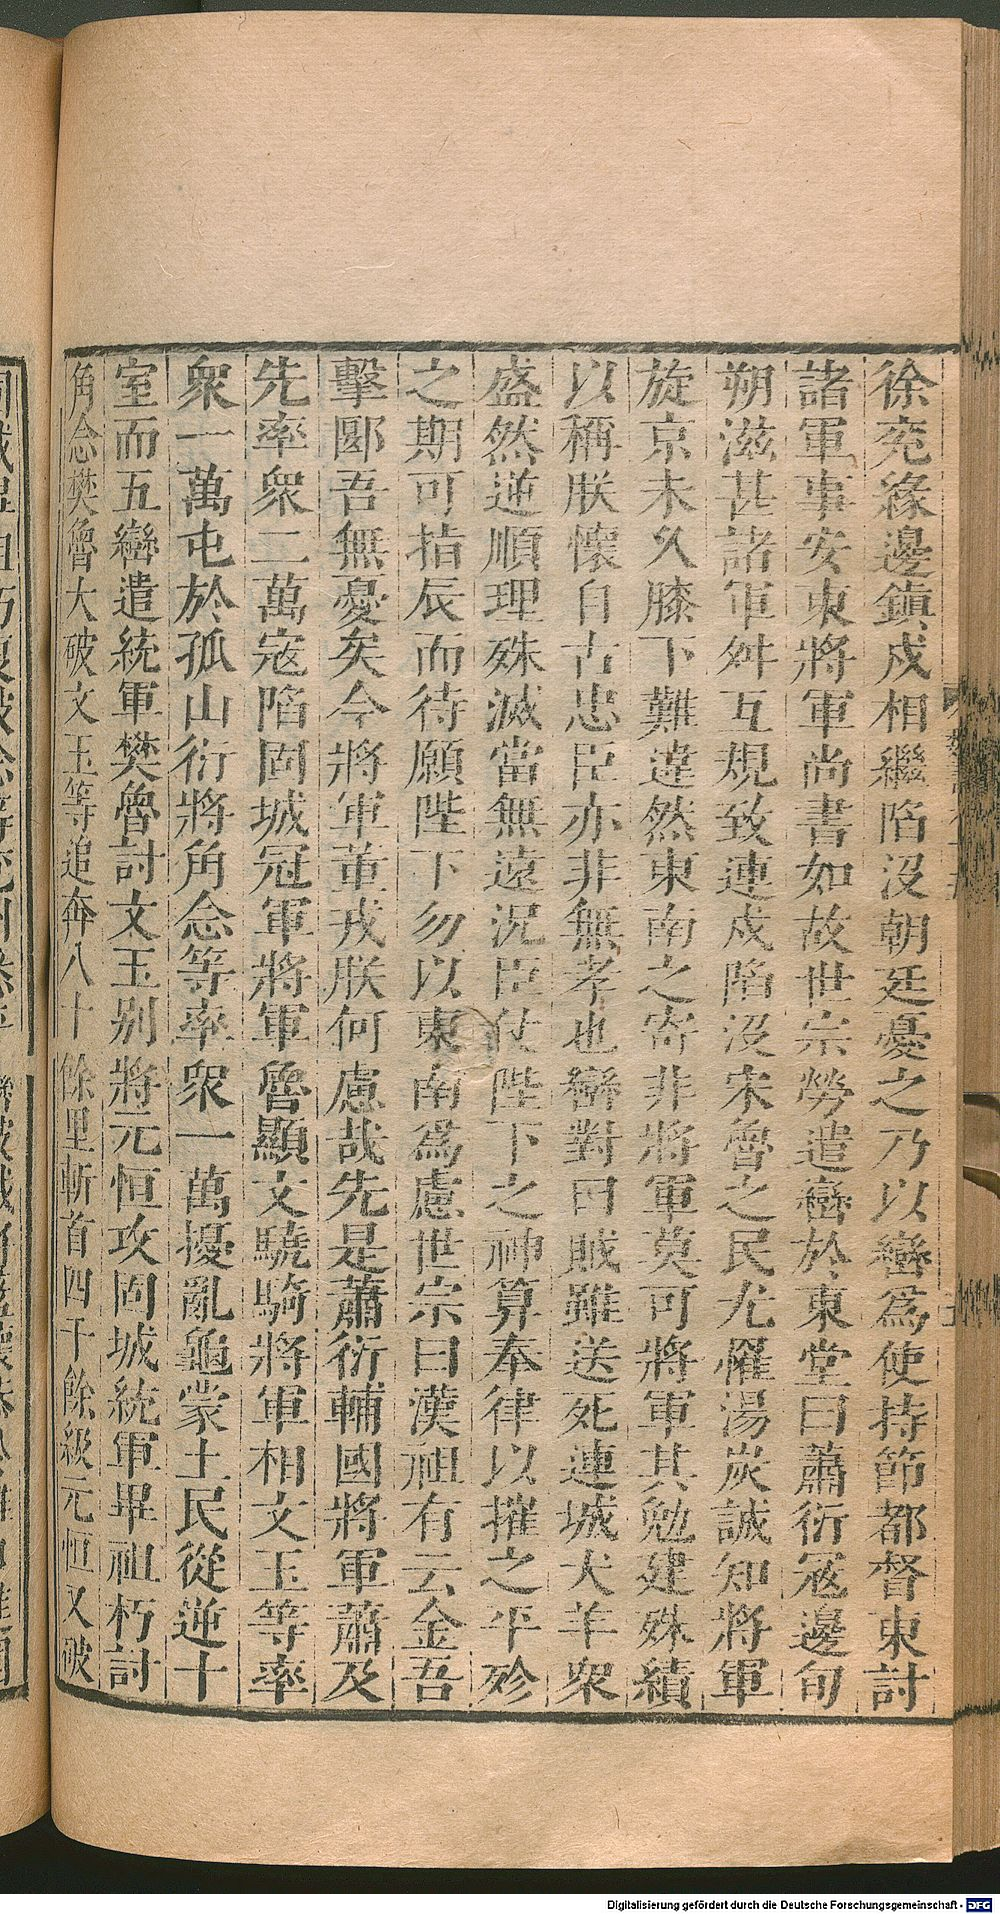 徐兖緣邊鎭戍相繼陷没朝廷憂之乃以巒爲使持節都督東討
諸軍事安東將軍尚書如故世宗勞遣巒於東堂曰蕭衍寇邊旬
朔滋甚諸軍舛互規致連戍陷没宋魯之民尤罹湯炭誠知將軍
旋京未久膝下難違然東南之寄非將軍莫可將軍其勉建殊績
以稱朕懷自古忠臣亦非無孝也巒對曰賊雖送死連城犬羊衆
盛然逆順理殊滅當無遠況臣仗陛下之神算奉律以摧之平殄
之期可指辰而待願陛下勿以東南爲慮世宗曰漢祖有云金吾
擊郾吾無憂矣今將軍董戎朕何慮哉先是蕭衍輔國將軍蕭及
先率衆二萬寇陷固城冠軍將軍魯顯文驍騎將軍相文玉等率
衆一萬屯於孤山衍將角念等率衆一萬擾亂龜蒙土民從逆十
室而五巒遣統軍樊魯討文玉別將元恒攻固城統軍畢祖朽討
角念樊魯大破文玉等追奔八十餘里斬首四千餘級元恒又破
Digitalisierung gefördert durch die Deutsche Forschungsgemeinschaft - DFG